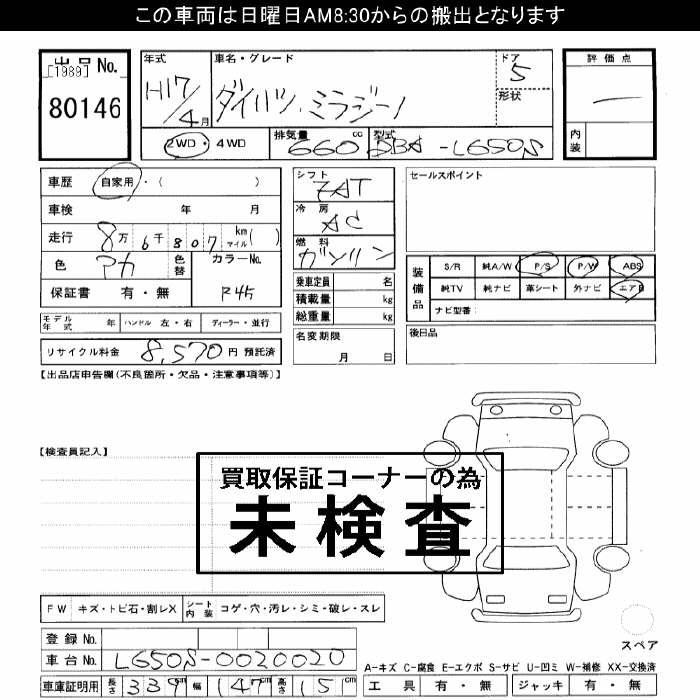 この車両は日曜日AM8:30からの搬出となります
出品No.
[1989]
80146
年式
H17/4月
車名・グレード
ダイハツ ミラジーノ
ドア
5
形状
評価点
内装
2WD・4WD
排気量
660 cc
型式
DBA-L650S
車歴 自家用・( )
車検 年 月
走行 8万6千807 km マイル( )
色
色替
カラーNo.
R45
保証書 有・無
シフト
7AT
冷房
AC
燃料
ガソリン
乗車定員 名
積載量 kg
総重量 kg
名変期限
月 日
セールスポイント
装備品
S/R 純A/W P/S P/W ABS
純TV 純ナビ 革シート 外ナビ エアB
ナビ型番:
後日品
モデル年式 年 ハンドル 左・右 ディーラー・並行
リサイクル料金 8,570円 預託済
【出品店申告欄(不良箇所・欠品・注意事項等)】
【検査員記入】
買取保証コーナーの為
未検査
FW キズ・トビ石・割レX シート内装 コゲ・穴・汚レ・シミ・破レ・スレ
登録No.
車台No. L650S-0020020
車庫証明用 長さ 339cm 幅 147cm 高さ 15cm
スペア
A-キズ C-腐食 E-エクボ S-サビ U-凹ミ W-補修 XX-交換済
工具 有・無 ジャッキ 有・無